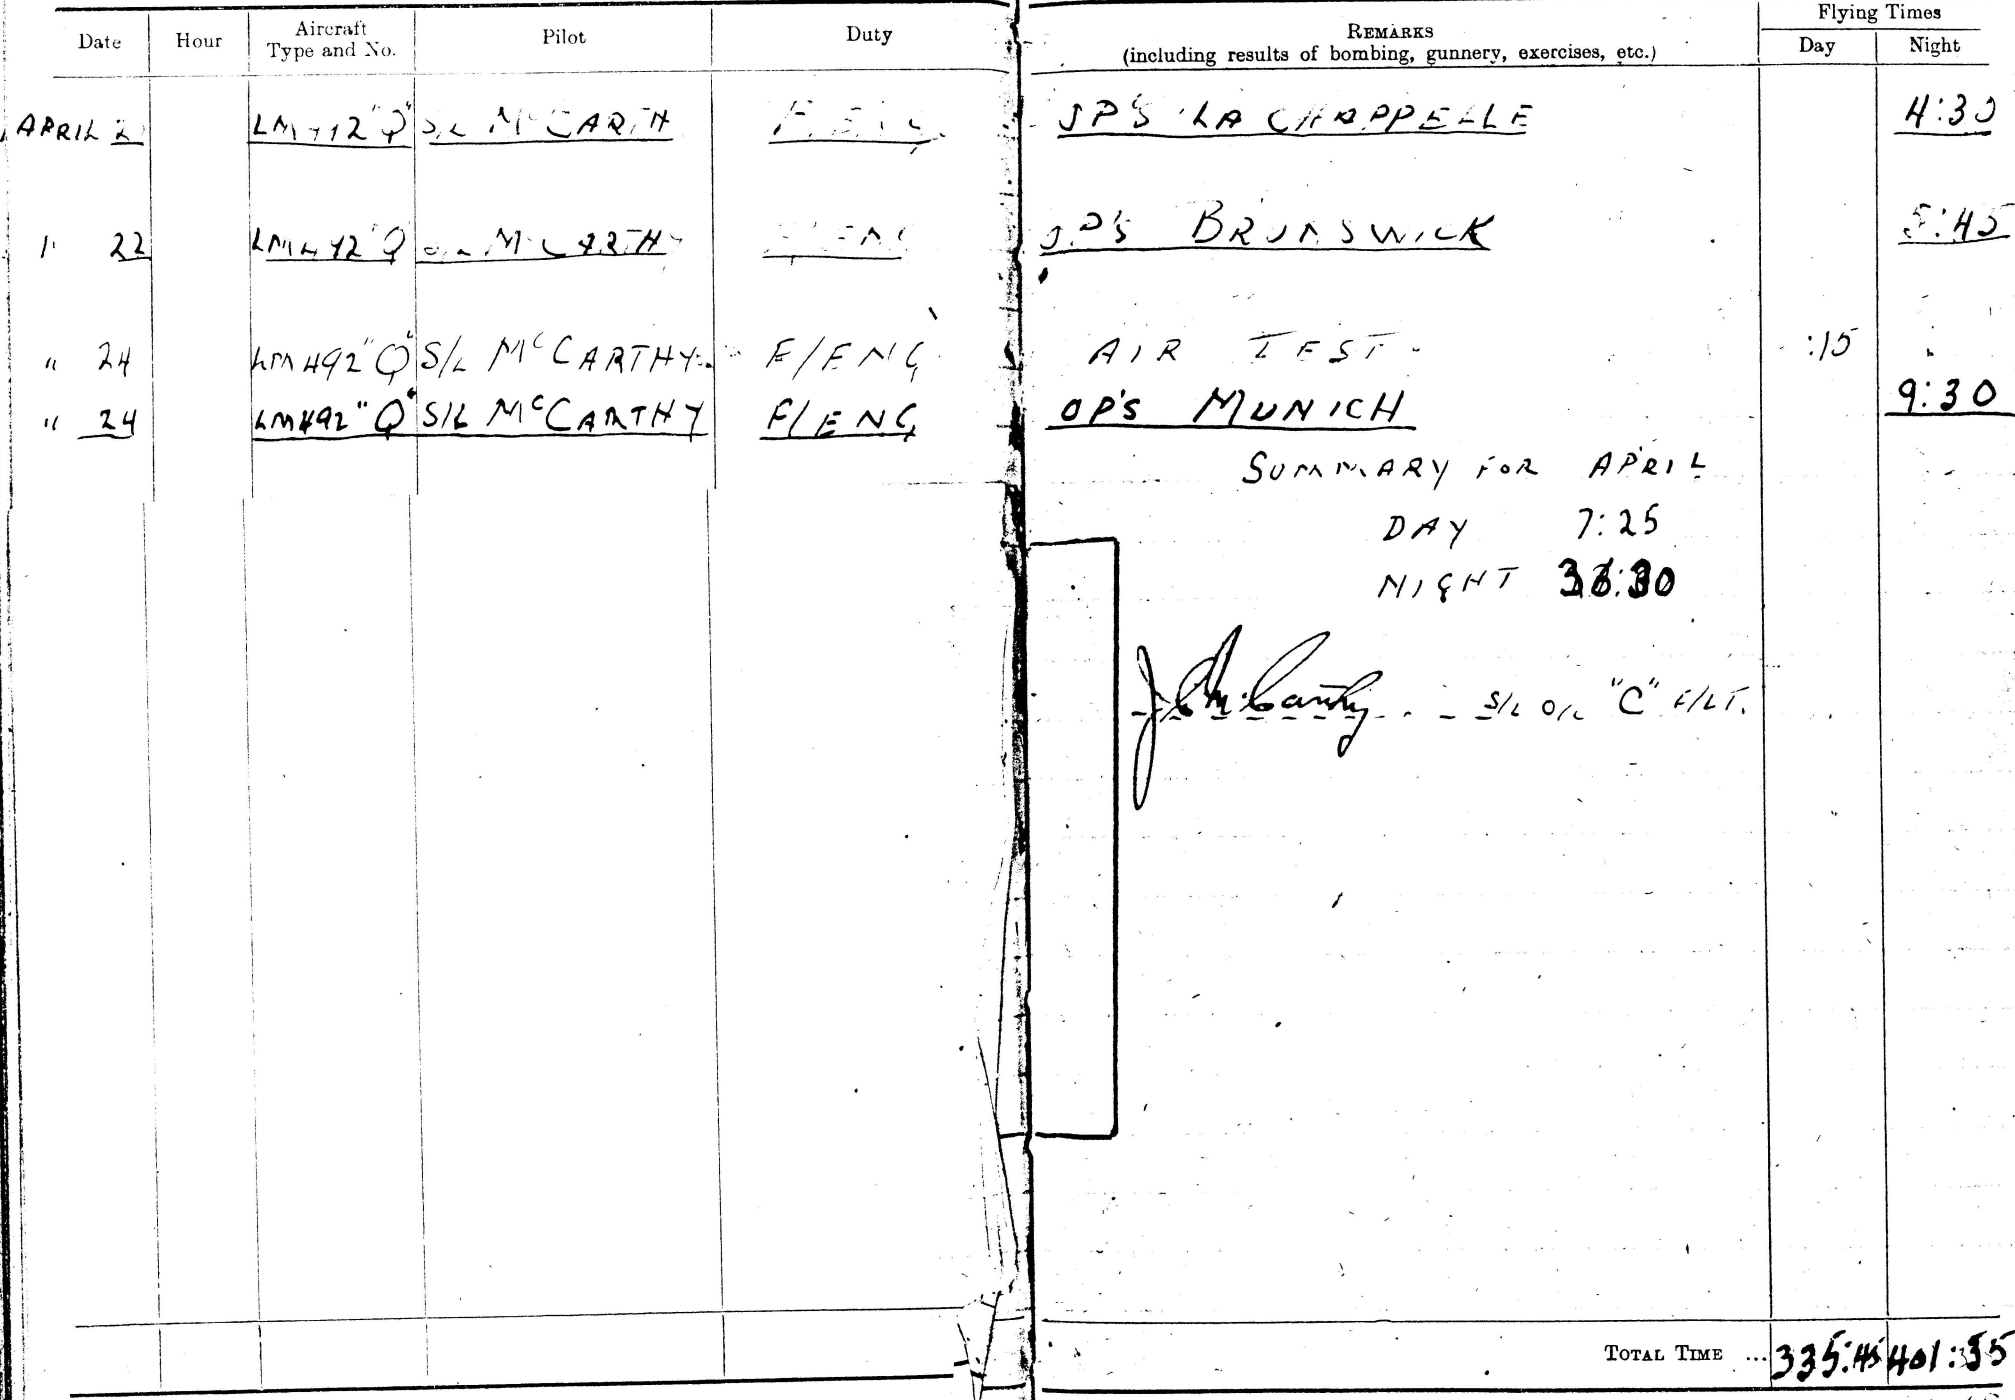 Date Hour Aircraft Type and No. Pilot Duty REMARKS (including results of bombing, gunnery, exercises, etc.) Flying Times Day Night
APRIL 2 "Q" S/L McCARTH F/ENG OP'S LA CHAPPELLE 4:30
" 22 "Q" McCARTHY ENG OP'S BRUNSWICK 5:45
" 24 LM492 "Q" S/L McCARTHY F/ENG AIR TEST :15
" 24 LM492 "Q" S/L McCARTHY F/ENG OP'S MUNICH 9:30
SUMMARY FOR APRIL
DAY 7:25
NIGHT
J C McCarthy S/L O/C "C" F/LT.
TOTAL TIME ... 335:45 401:35